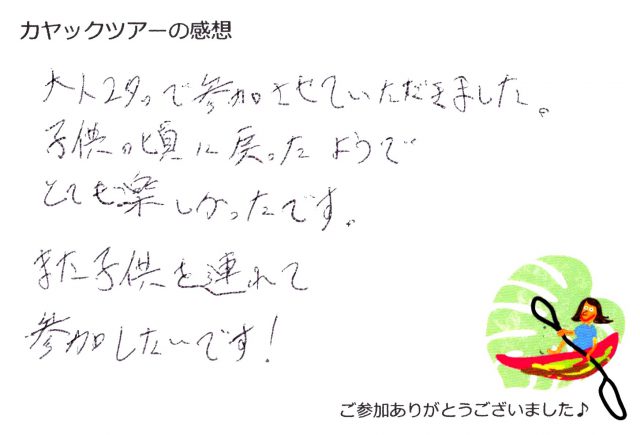 カヤックツアーの感想
大人2名で参加させていただきました。
子供の頃に戻ったようで
とても楽しかったです。
また子供を連れて
参加したいです！
ご参加ありがとうございました♪